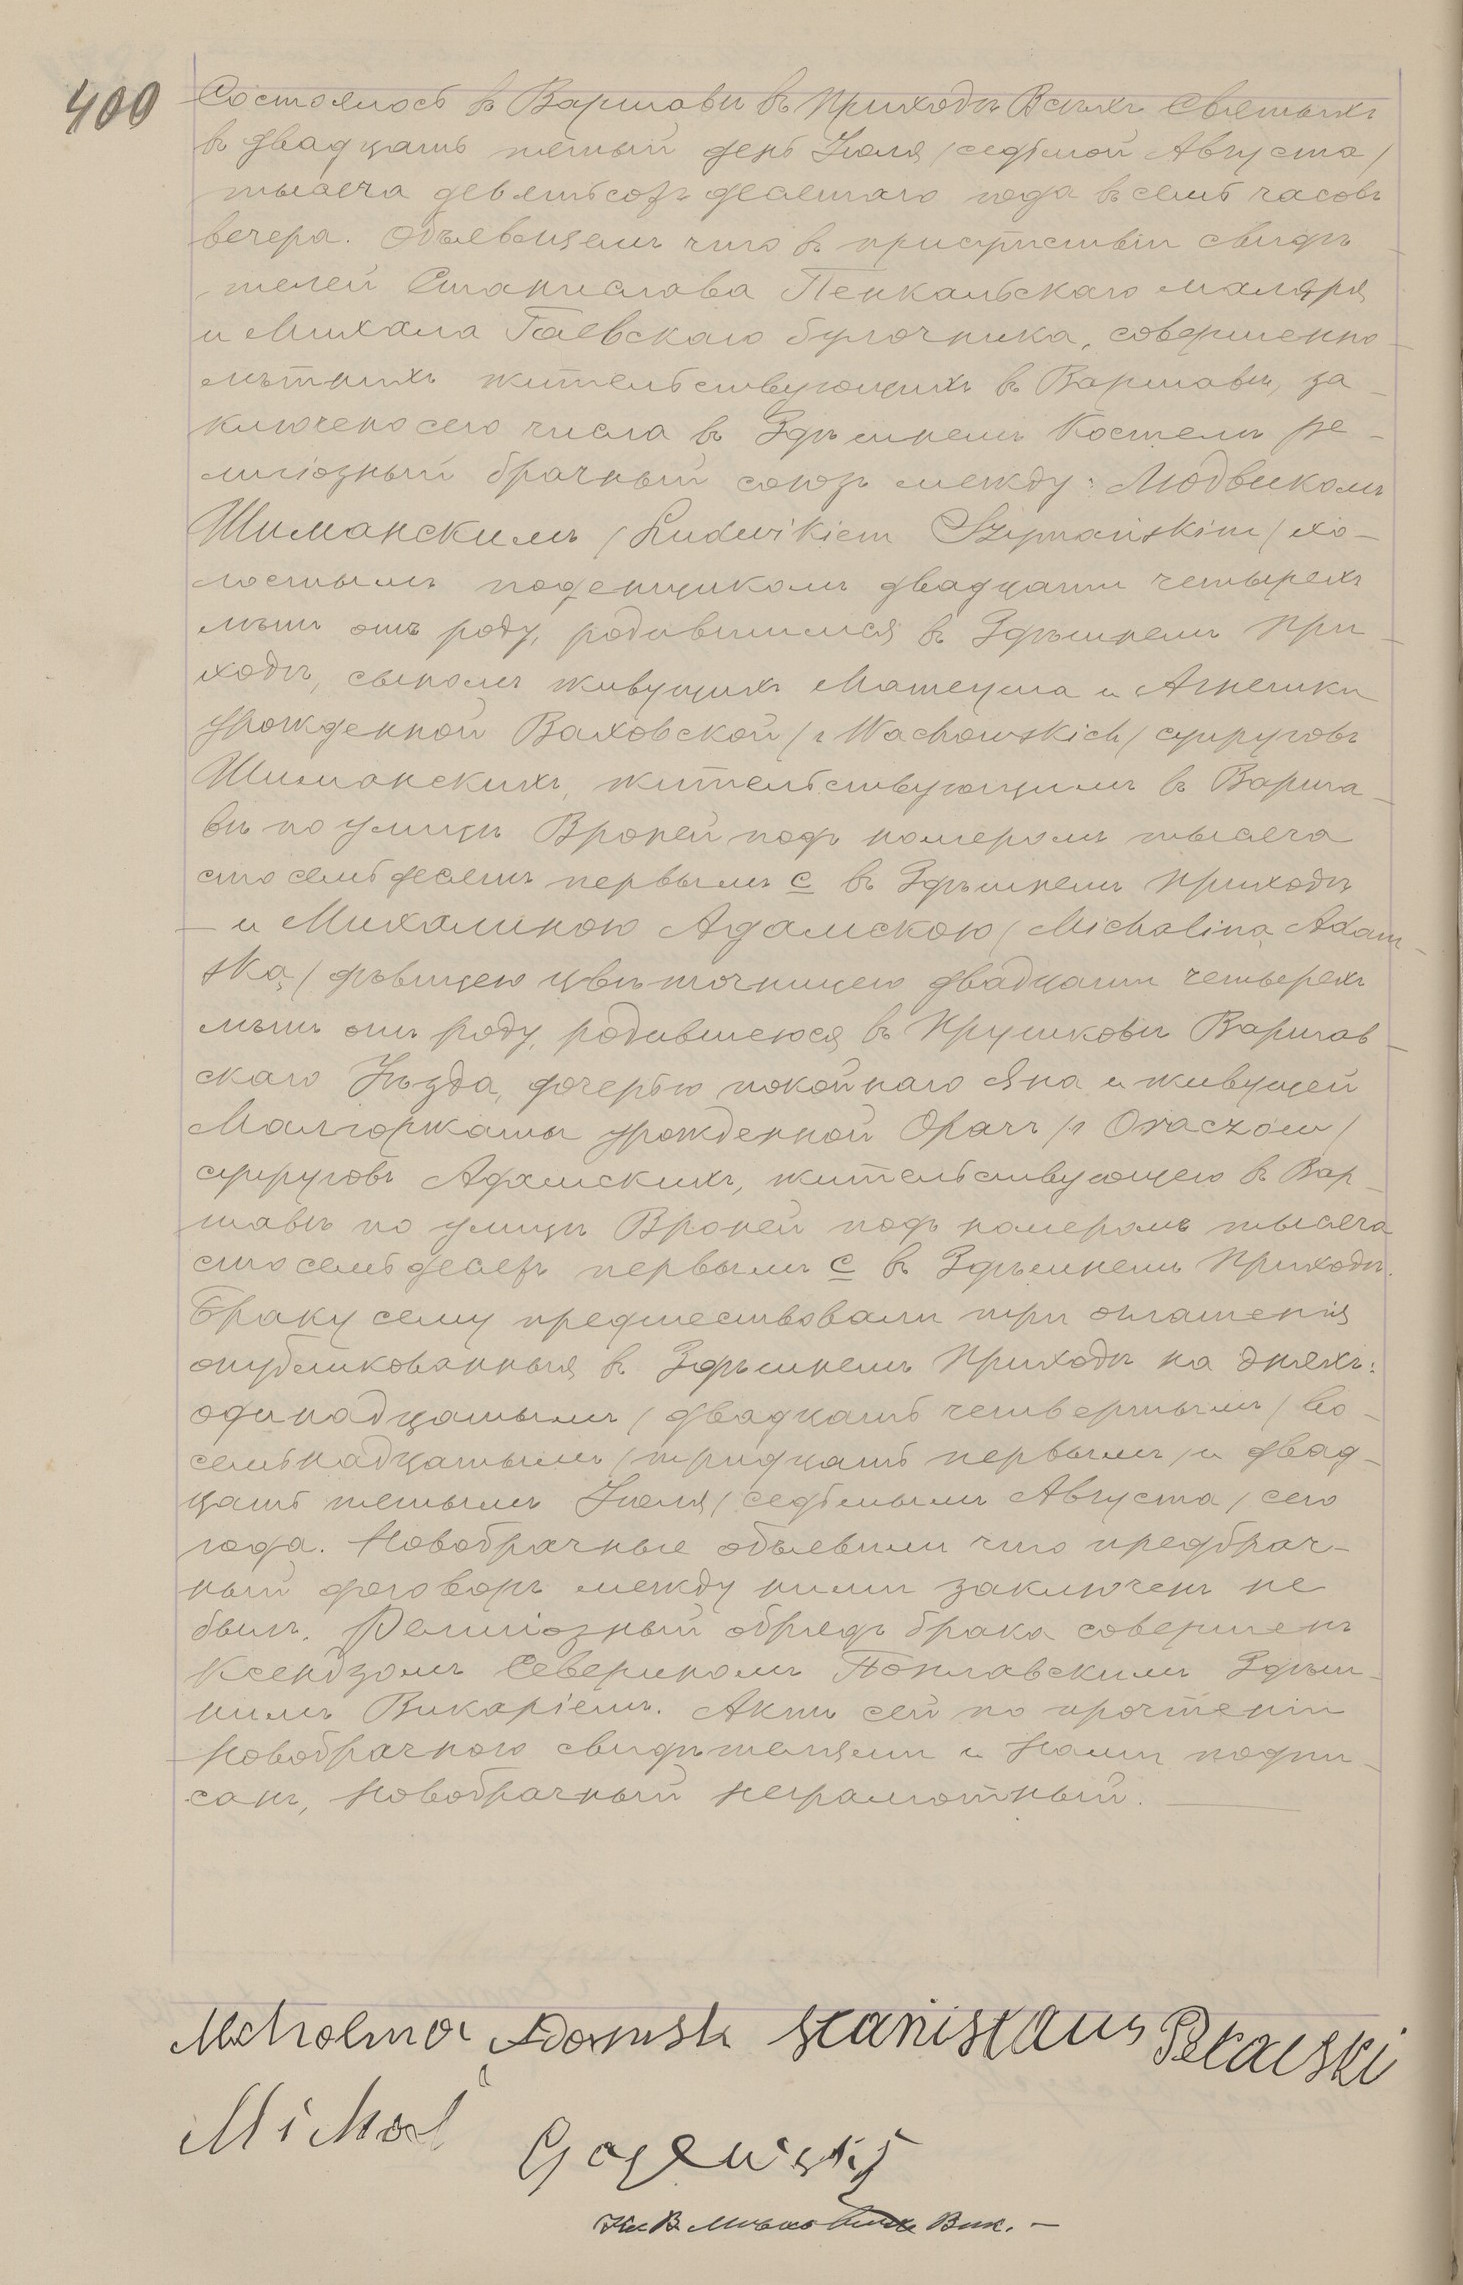 400
Состоялось въ Варшавѣ въ приходѣ Всѣхъ Святыхъ
въ двадцать пятый день Іюля /седьмой Августа/
тысяча девятьсотъ десятаго года въ семь часовъ
вечера. Объявляемъ что въ присутствіи свидѣ
телей Станислава Пенкальскаго маляра
и Михала Гаевскаго булочника, совершенно-
лѣтнихъ жительствующихъ въ Варшавѣ, за-
ключено сего числа въ Здѣшнемъ Костелѣ ре-
лигіозный брачный союзъ между: Людвикомъ
Шиманскимъ /Ludwikiem Szymańskim/ хо-
лостымъ поденщикомъ двадцати четырехъ
лѣтъ отъ роду, родившимся въ Здѣшнемъ при-
ходѣ, сыномъ живущихъ Матеуша и Агнешки
урожденной Ваховской /z Wachowskich/ супруговъ
Шиманскихъ, жительствующимъ въ Варша-
вѣ по улицѣ Вроней подъ номеромъ тысяча
сто семьдесятъ первымъ с въ Здѣшнемъ приходѣ
- и Михалиною Адамскою /Michaliną Adam-
ską/ дѣвицею цвѣточницею двадцати четырехъ
лѣтъ отъ роду, родившеюся въ Прушковѣ Варшав-
скаго Уѣзда, дочерью покойнаго Яна и живущей
Малгоржаты урожденной Орачъ /z Oraczów/
супруговъ Адамскихъ, жительствующею въ Вар-
шавѣ по улицѣ Вроней подъ номеромъ тысяча
сто семьдесятъ первымъ с въ Здѣшнемъ приходѣ.
Браку сему предшествовали три оглашенія
опубликованныя въ Здѣшнемъ приходѣ на дняхъ:
одинадцатымъ /двадцать четвертымъ/ во-
семьнадцатымъ /тридцать первымъ/ и двад-
цать пятымъ Іюля /седьмымъ Августа/ сего
года. Новобрачные объявили что предбрач-
ный договоръ между ними заключенъ не
былъ. Религіозный обрядъ брака совершенъ
Ксендзомъ Севериномъ Поплавскимъ Здѣш-
нимъ Викаріемъ. Актъ сей по прочтеніи
Новобрачною свидѣтелями и Нами подпи-
санъ, Новобрачный неграмотный.
Michalina Adamsk Stanisław Pekalski
Michał
Gajewski
Кс. В. Вик. —